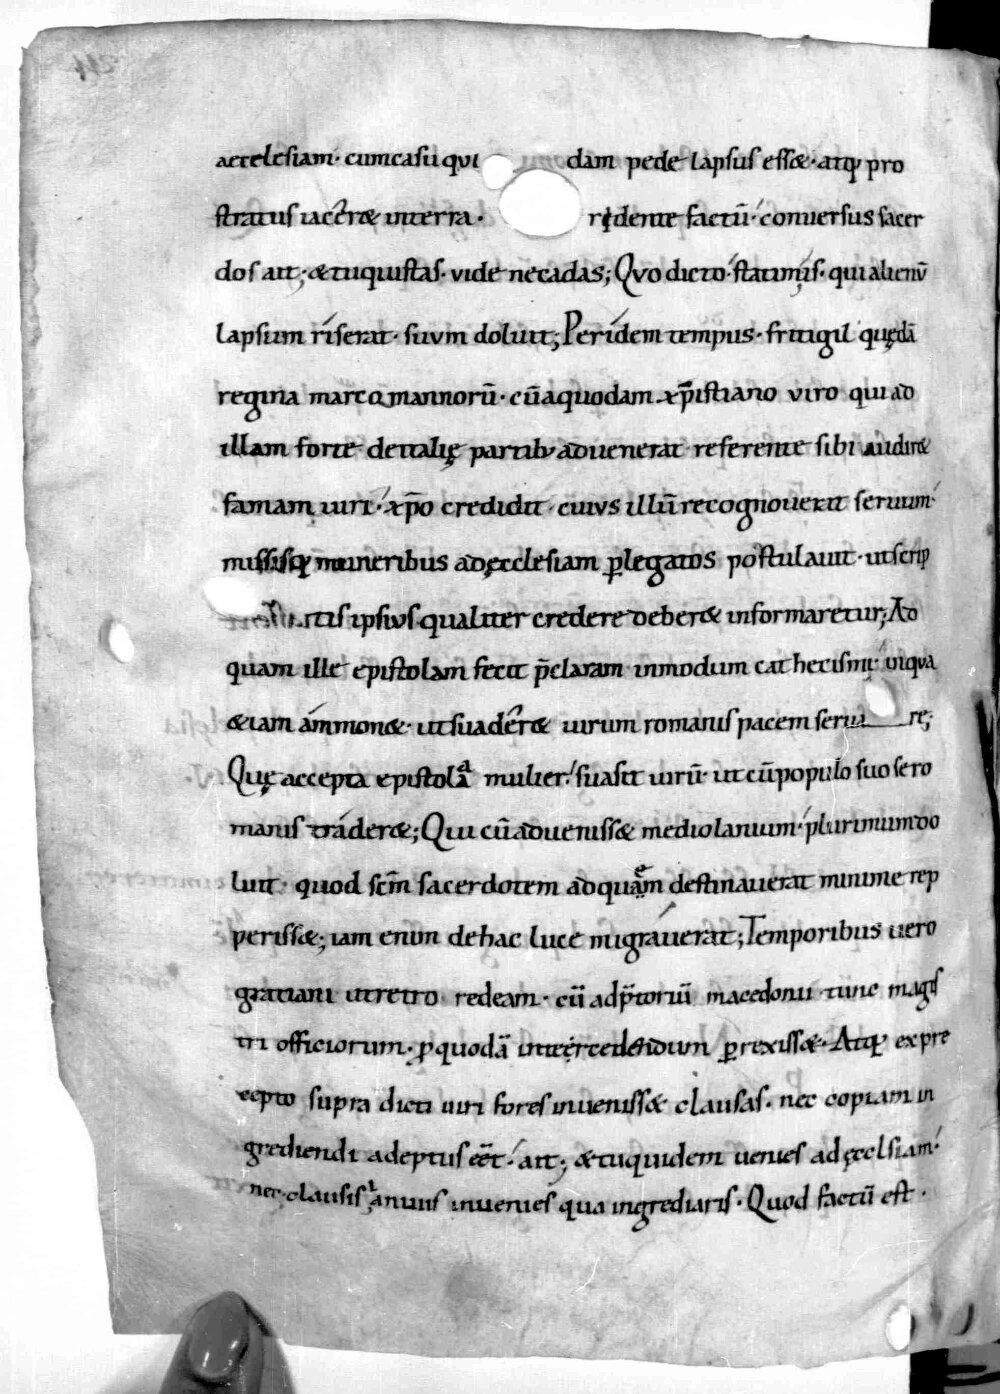 aecclesiam· cum casu qui dam pede lapsus essæ· atq; pro
stratus iaceræ interra· ridente factū· conuersus sacer
dos ait; & tu qui stas· vide ne cadas; Qvo dicto· statim is· qui alienū
lapsum riserat· suvm doluit; Per idem tempus· fritigil quędā
regina marcomannorū· cū a quodam xp̄istiano viro qui ad
illam forte de italię partib; aduenerat· referente sibi audiræ
famam uiri· xp̄o credidit· cuius illū recognouerat seruum·
missisq; muneribus ad ęcclesiam p̱legatos postulauit· ut scrip
tis ipsivs qualiter credere deberæ informaretur; Ad
quam ille epistolam fecit p̄claram in modum cathecismi· in qva
&iam ammonæ· ut suaderæ uirum romanis pacem serua re;
Quę accepta epistola mulier· suasit uirū· ut cū populo suo se ro
manis traderæ; Qui cū aduenissæ mediolanium· plurimum do
luit· quod scm̄ sacerdotem ad quem destinauerat minime rep
perissæ; iam enim de hac luce migrauerat; Temporibus uero
gratiani ut retro redeam· cū ad p̄toriū macedonii tunc magis
tri officiorum· ꝓ quodā intercedendum p̱rexissæ· Atq; ex pre
cepto supra dicti uiri fores inuenissæ clausas· nec copiam in
grediendi adeptus eēt· ait; & tu quidem uenies ad ęcclsiam·
nec clausis ianuis inuenies qua ingrediaris· Quod factū est·